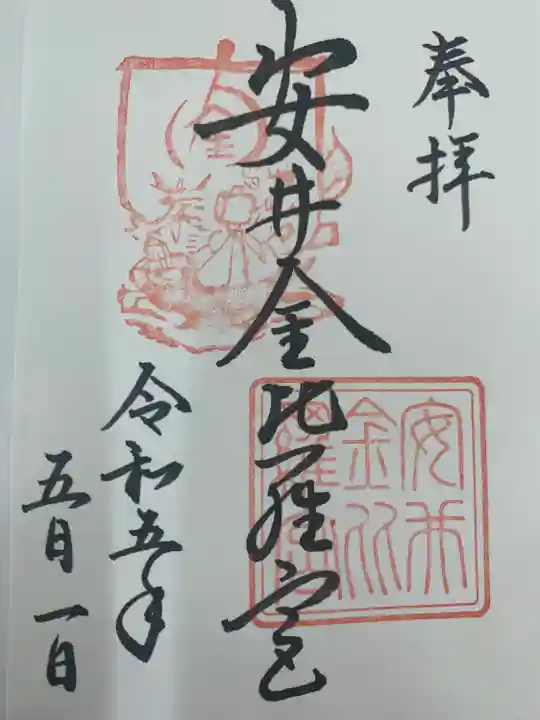 奉拝
安井金比羅宮
令和五年
五月一日
安井
金比
羅宮
金